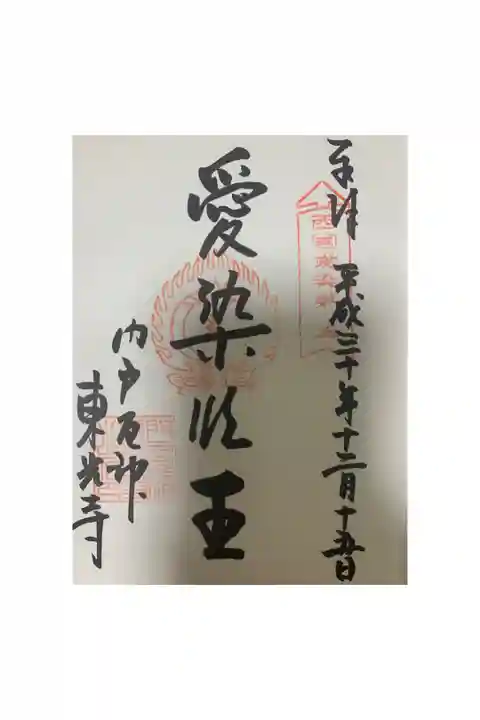 奉拝 平成三十年十二月十五日
愛染明王
門戸厄神
東光寺